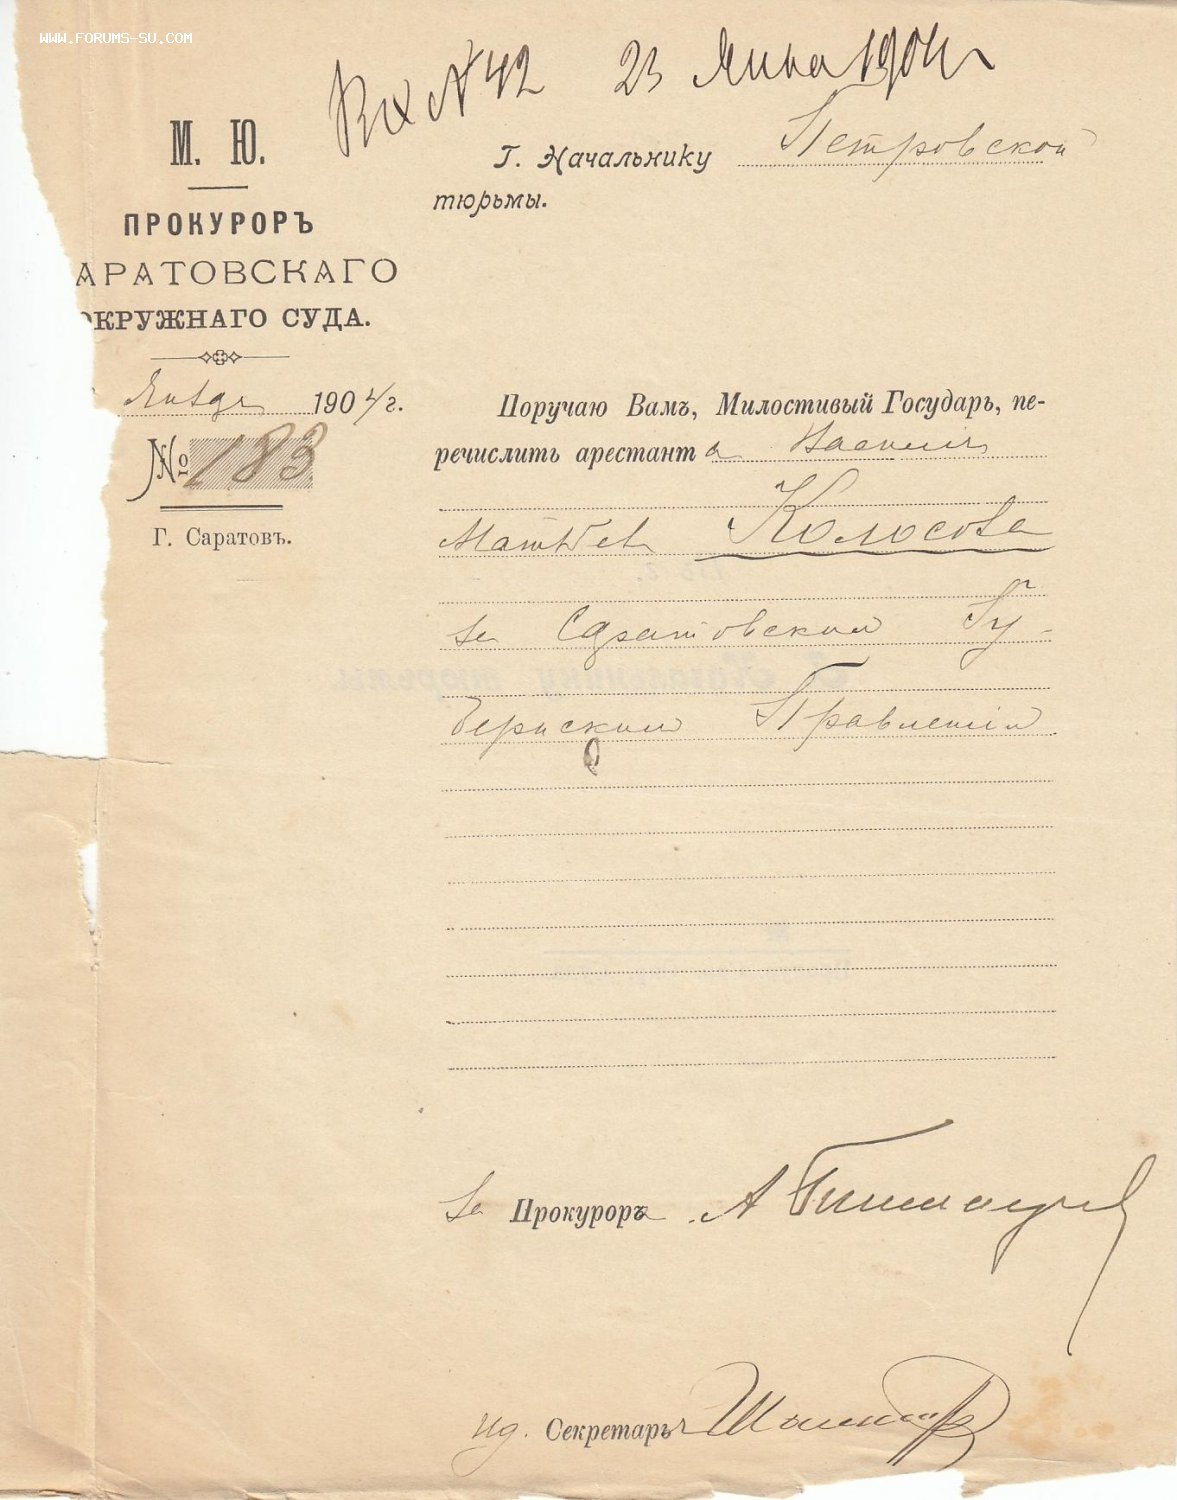 WWW.FORUMS-SU.COM
Вх № 42 23 Янва 1904 г
М. Ю.
ПРОКУРОРЪ
АРАТОВСКАГО
ОКРУЖНАГО СУДА.
Января 1904 г.
№ 183
Г. Саратовъ.
Г. Начальнику Петровской
тюрьмы.
Поручаю Вамъ, Милостивый Государь, пе-
речислить арестанта Василія
Матвѣева Колосова
за Саратовскимъ Гу-
бернскимъ Правленіем
За Прокурора А
Ид. Секретарь